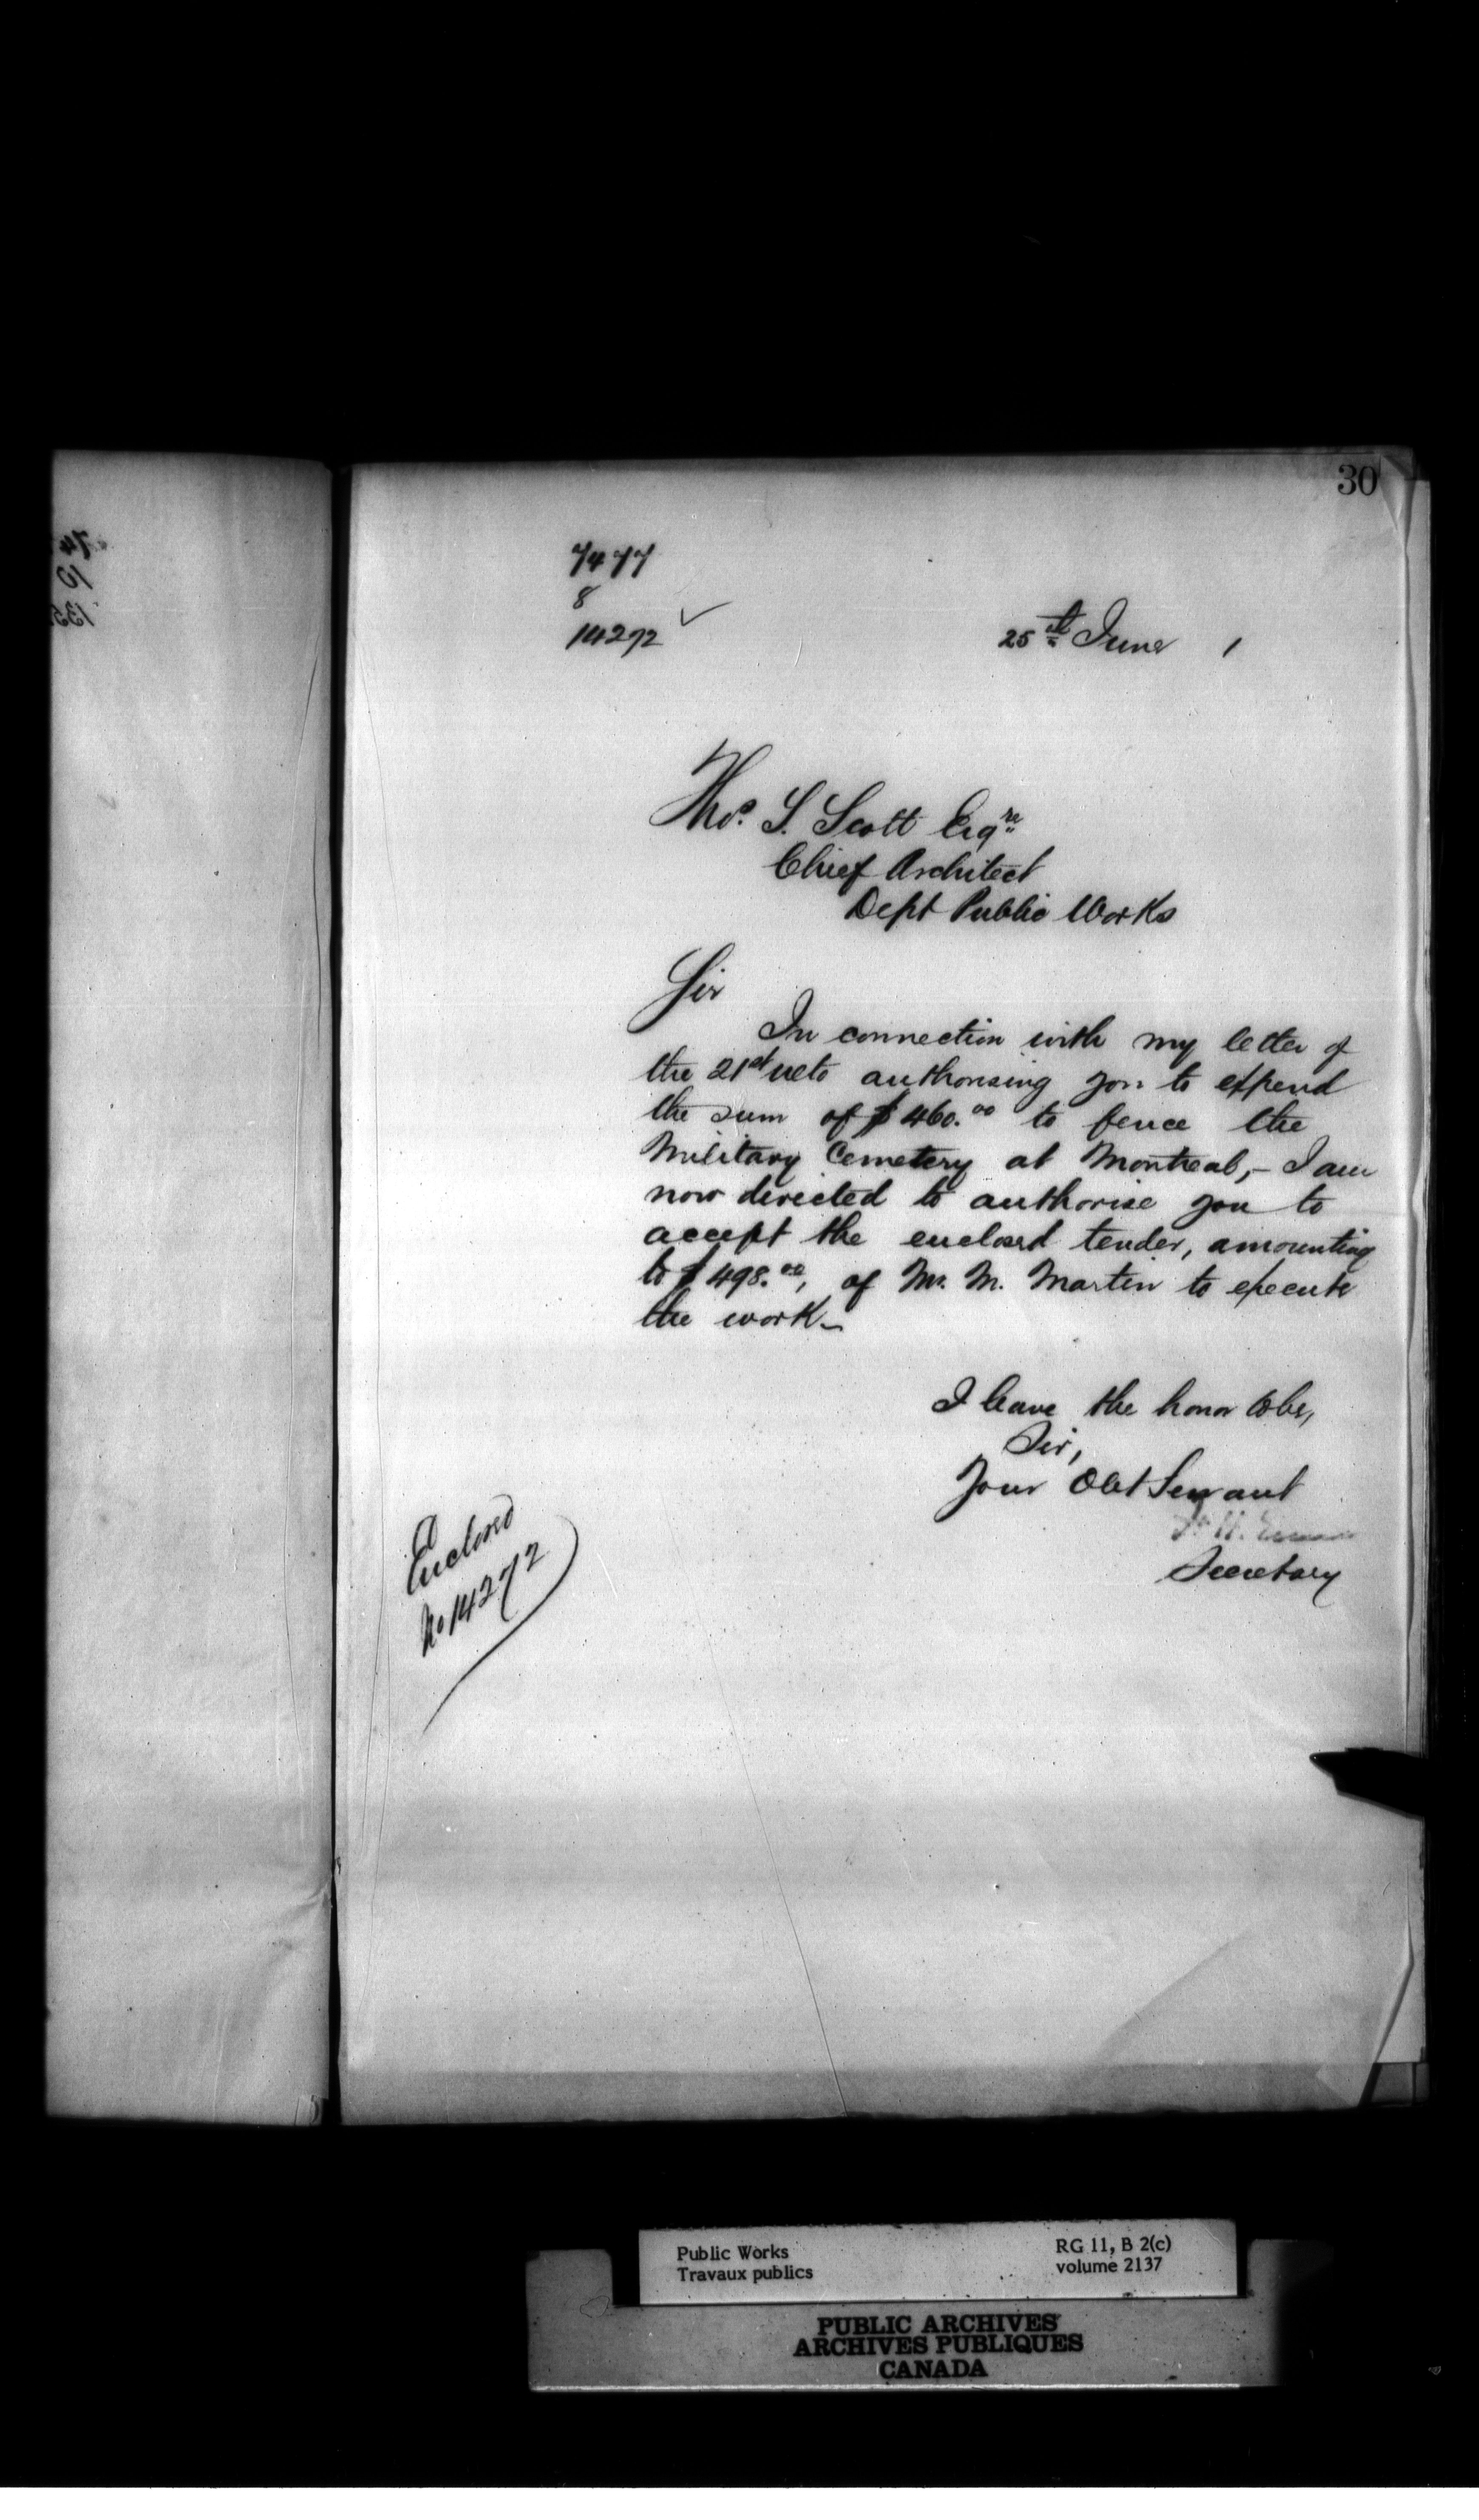 30
7477
8
14272
25th June 1
Thos. S. Scott Esqre
Chief Architect
Dept Public Works
Sir
In connection with my letter of
the 21st ulto authorising you to expend
the sum of $460.00 to fence the
Military Cemetery at Montreal,- I am
now directed to authorise you to
accept the enclosed tender, amounting
to $498.00, of Mr. M. Martin to execute
the work_
I have the honor to be,
Sir,
Your Obt Servant
Secretary
Enclosed
No 14272
Public Works
Travaux publics
RG 11, B 2(c)
volume 2137
PUBLIC ARCHIVES
ARCHIVES PUBLIQUES
CANADA